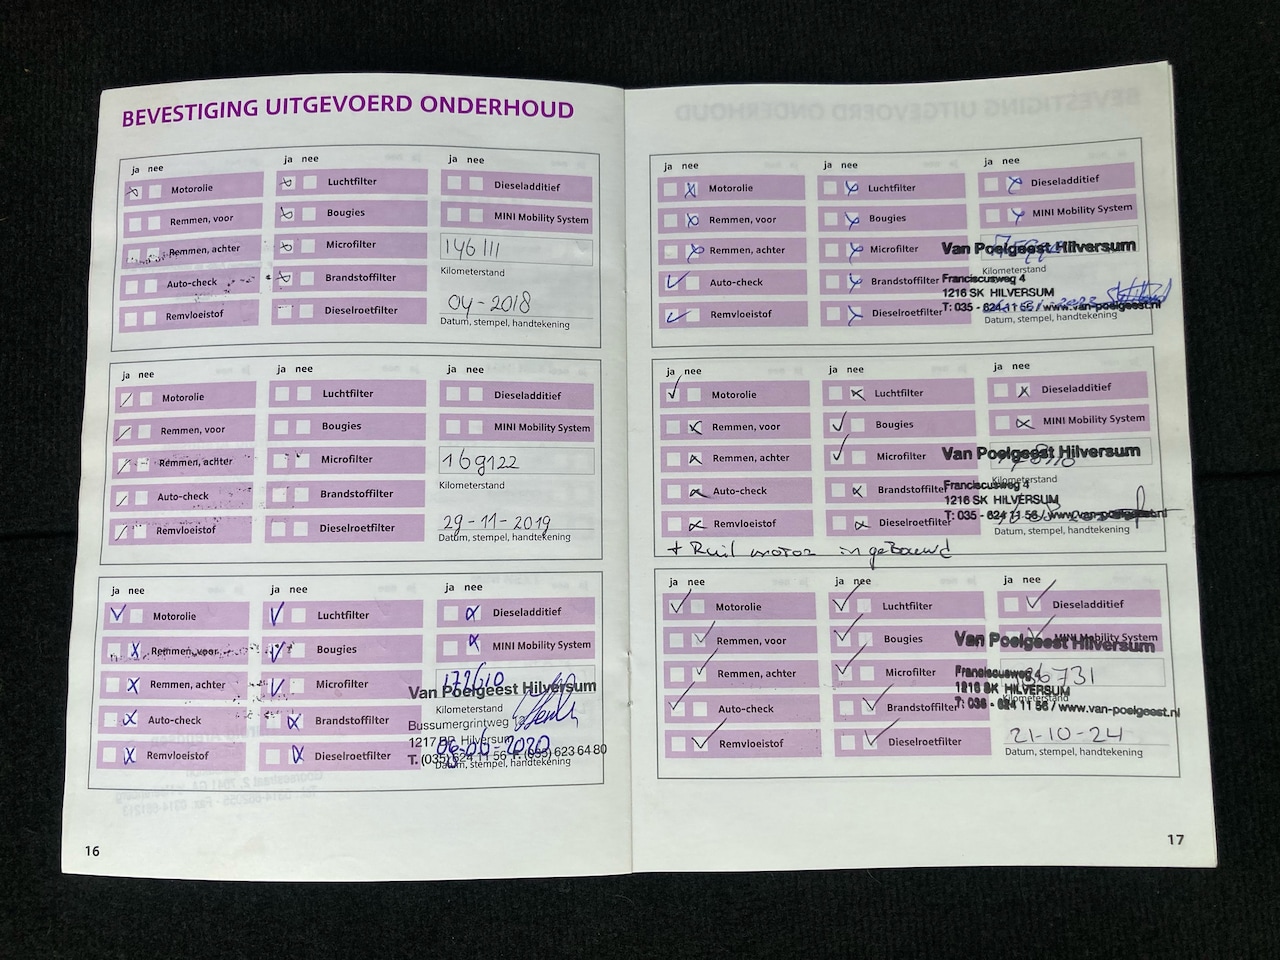 BEVESTIGING UITGEVOERD ONDERHOUD
ja nee ja nee ja nee
Motorolie Luchtfilter Dieseladditief
Remmen, voor Bougies MINI Mobility System
Remmen, achter Microfilter 146111
Kilometerstand
Auto-check Brandstoffilter
Remvloeistof Dieselroetfilter 04-2018
Datum, stempel, handtekening
ja nee ja nee ja nee
Motorolie Luchtfilter Dieseladditief
Remmen, voor Bougies MINI Mobility System
Remmen, achter Microfilter 169122
Kilometerstand
Auto-check Brandstoffilter
Remvloeistof Dieselroetfilter 29-11-2019
Datum, stempel, handtekening
ja nee ja nee ja nee
Motorolie Luchtfilter Dieseladditief
Remmen, voor Bougies MINI Mobility System
Remmen, achter Microfilter 172610
Van Poelgeest Hilversum
Kilometerstand
Auto-check Brandstoffilter Bussumergrintweg
1217 Hilversum
06-06-2020
Remvloeistof Dieselroetfilter T. (035) 624 11 56 (035) 623 64 80
Datum, stempel, handtekening
16
ja nee ja nee ja nee
Motorolie Luchtfilter Dieseladditief
Remmen, voor Bougies MINI Mobility System
Remmen, achter Microfilter Van Poelgeest Hilversum
Kilometerstand
Auto-check Brandstoffilter Franciscusweg 4
1216 SK HILVERSUM
Remvloeistof Dieselroetfilter T: 035 - 624 11 56 / www.van-poelgeest.nl
Datum, stempel, handtekening
ja nee ja nee ja nee
Motorolie Luchtfilter Dieseladditief
Remmen, voor Bougies MINI Mobility System
Remmen, achter Microfilter Van Poelgeest Hilversum
Kilometerstand
Auto-check Brandstoffilter Franciscusweg 4
1216 SK HILVERSUM
Remvloeistof Dieselroetfilter T: 035 - 624 11 56 / www.van-poelgeest.nl
Datum, stempel, handtekening
+ Ruil motor in gebouwd
ja nee ja nee ja nee
Motorolie Luchtfilter Dieseladditief
Remmen, voor Bougies MINI Mobility System
Van Poelgeest Hilversum
Remmen, achter Microfilter Franciscusweg 4 86731
1216 SK HILVERSUM
Kilometerstand
Auto-check Brandstoffilter T: 035 - 624 11 56 / www.van-poelgeest.nl
Remvloeistof Dieselroetfilter 21-10-24
Datum, stempel, handtekening
17